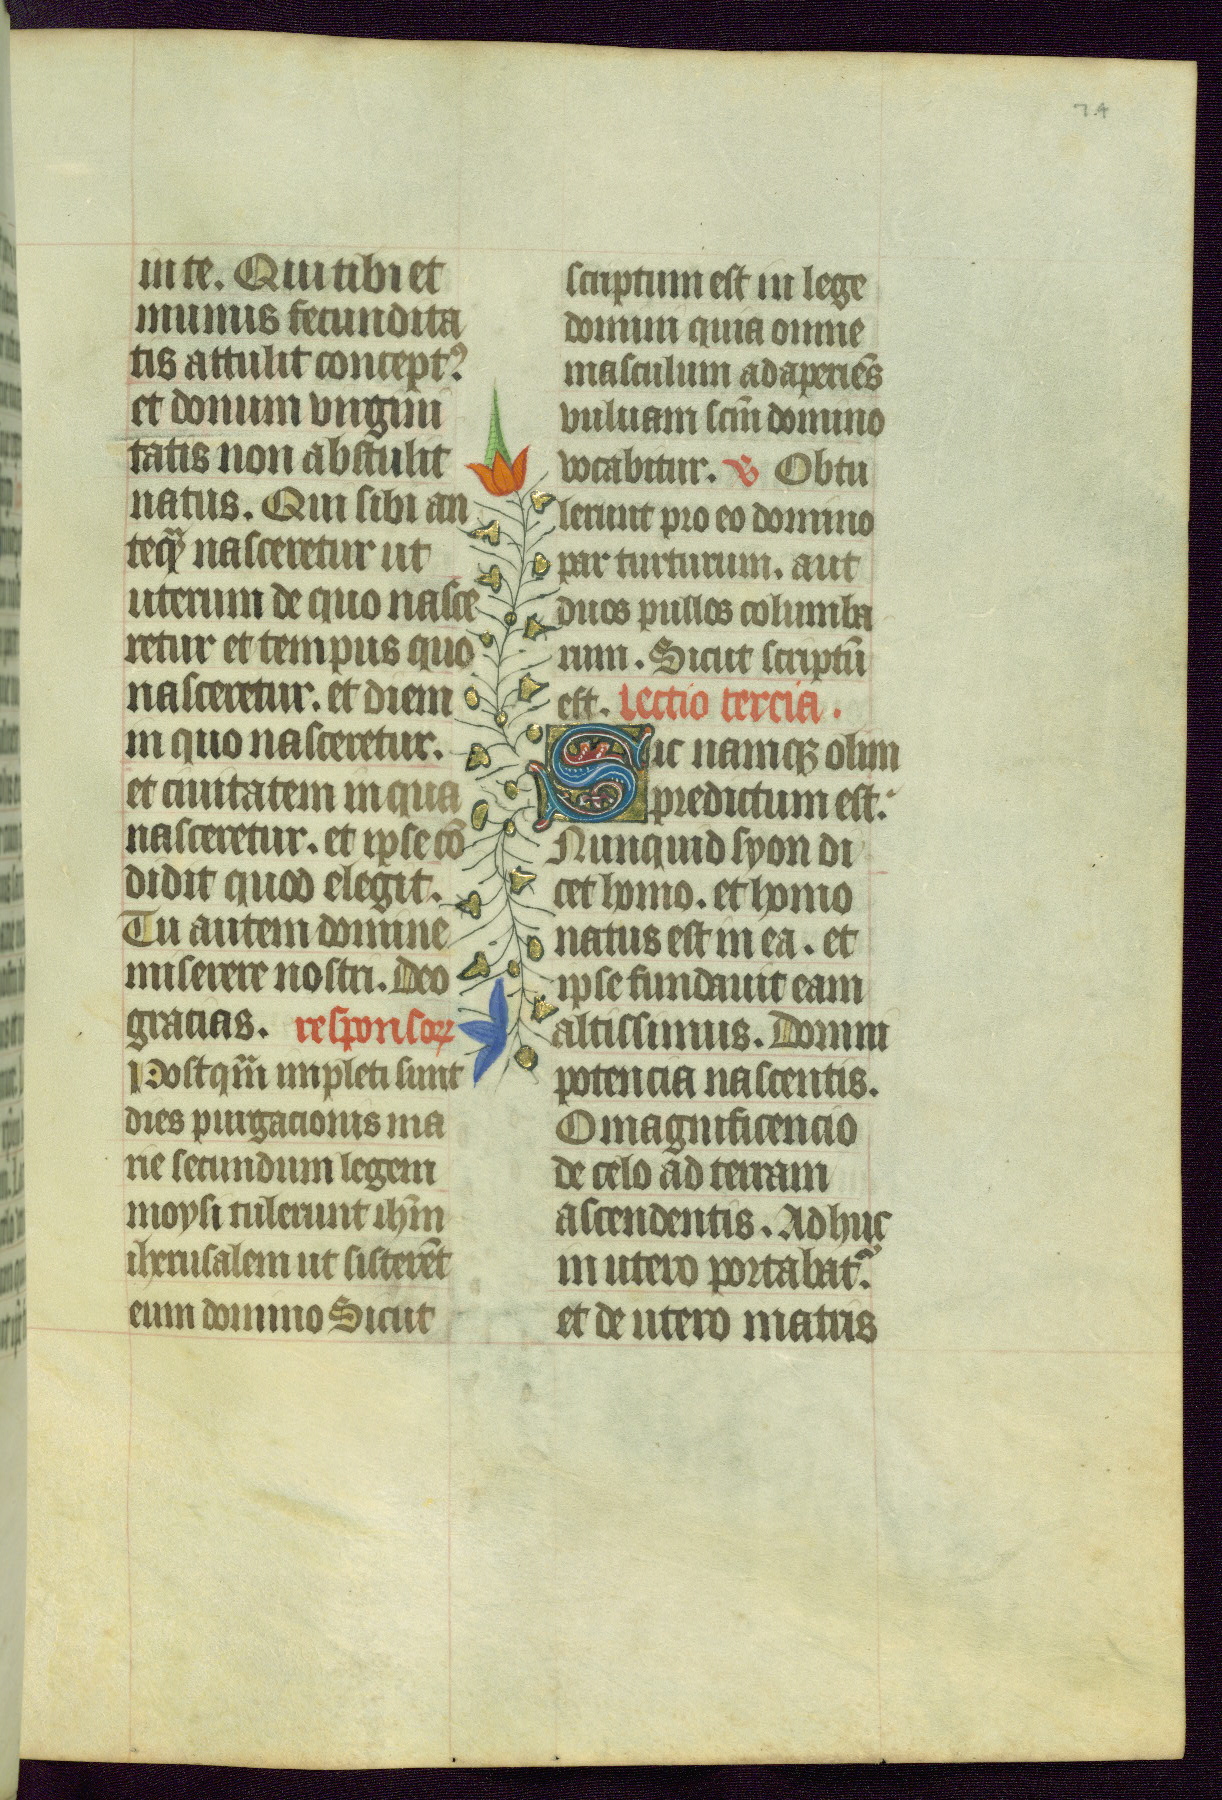 74
in te. Qui tibi et
munus fecundita
tis attulit conceptꝰ
et donum virgini
tatis non abstulit
natus. Qui sibi an
teq̄ nasceretur ut
uterum de quo nasce
retur et tempus quo
nasceretur. et diem
in quo nasceretur.
et ciuitatem in qua
nasceretur. et ipse cō
didit quod elegit.
Tu autem domine
miserere nostri. Deo
gracias. responsoꝝ
Postqm̄ impleti sunt
dies purgacionis ma
rie secundum legem
moysi tulerunt ihm̄
iherusalem ut sisterēt
eum domino Sicut
scriptum est in lege
domini quia omne
masculum adaperiēs
vuluam scm̄ domino
vocabitur. ℣ Obtu
lerunt pro eo domino
par turturum. aut
duos pullos columba
rum. Sicut scriptū
est. Lectio tercia.
Sic namqꝫ olim
predictum est.
Nunquid syon di
cet homo. et homo
natus est in ea. et
ipse fundauit eam
altissimus. Domini
potencia nascentis.
O magnificencio
de celo ad terram
ascendentis. Adhuc
in utero portabat᷑.
et de utero matris